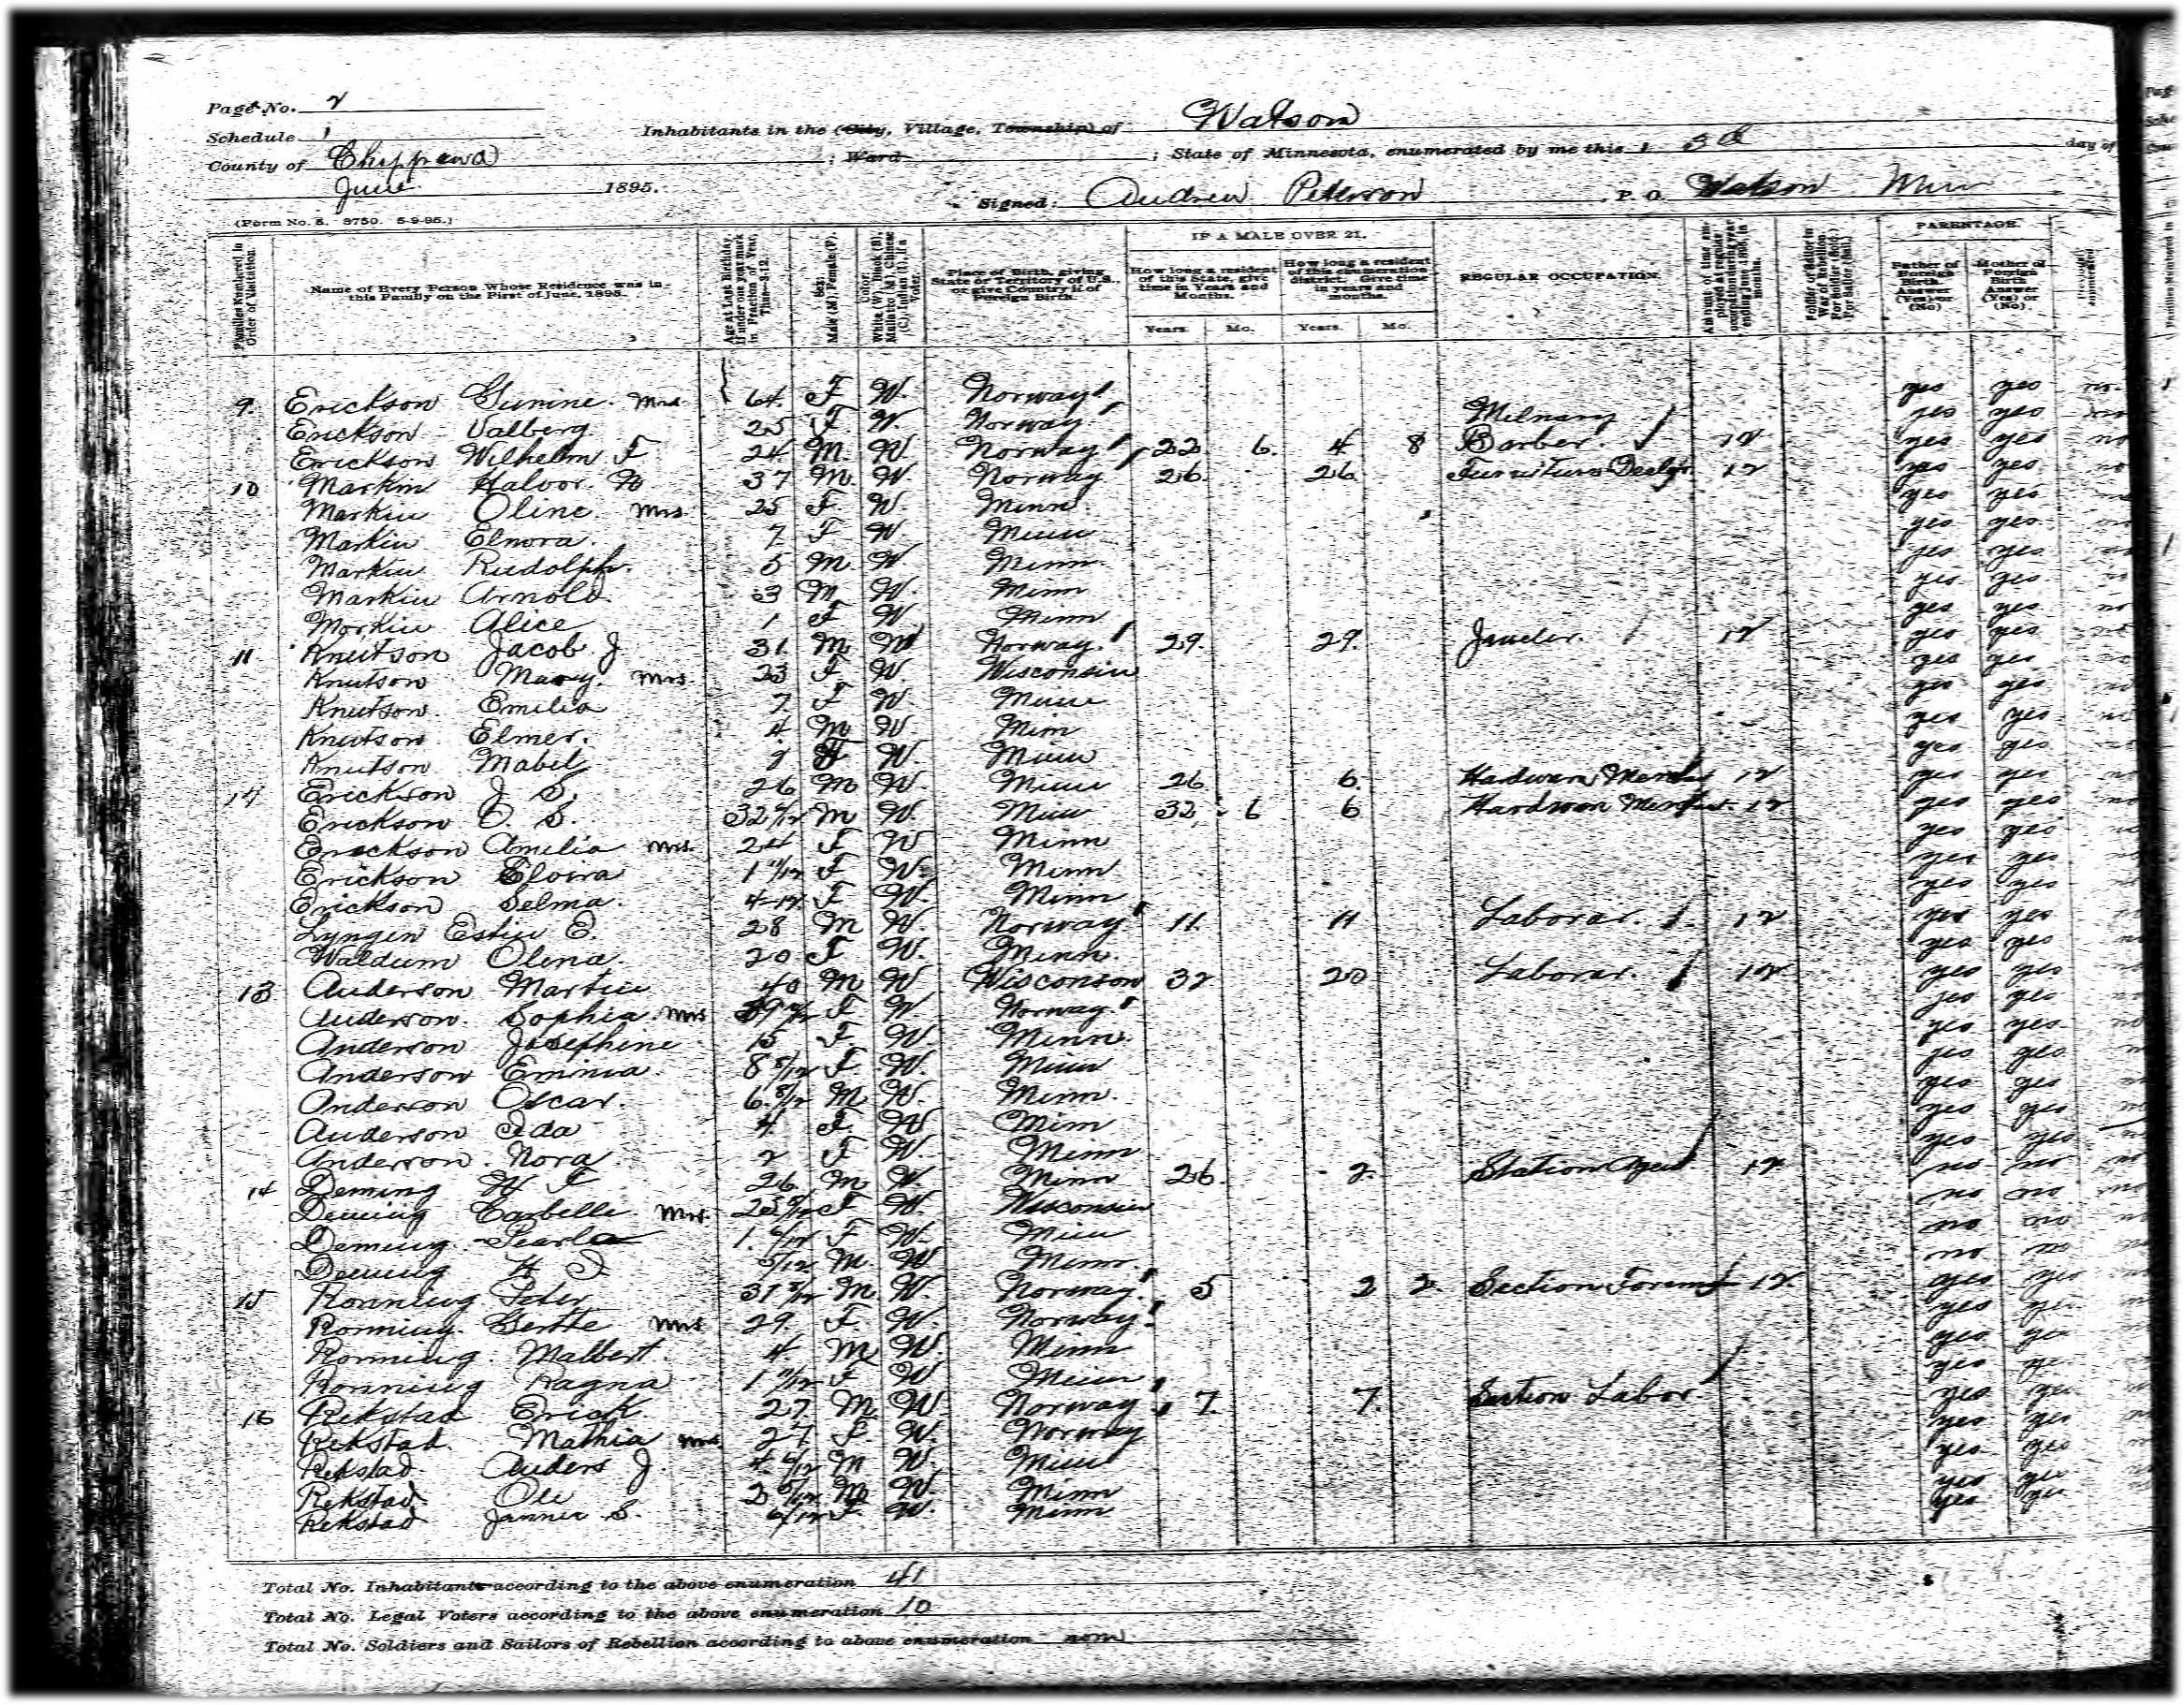 Page No. 2
Schedule 1 Inhabitants in the (City, Village, Township) of Watson
County of Chippewa ; Ward ; State of Minnesota, enumerated by me this day of
June 1895. Signed: Andrew Peterson P. O. Watson Minn
(Form No. 8. 8750. 5-9-95.)
Families Numbered in Order of Visitation.
Name of Every Person Whose Residence was in this Family on the First of June, 1895.
Age at Last Birthday. If under one year mark in Fraction of Year, Thus—3-12.
Sex: Male (M), Female (F).
Color: White (W), Black (B), Mulatto (M), Chinese (C), Indian (I), if a Voter.
Place of Birth, giving State or Territory of U.S., or give Country if of Foreign Birth.
IF A MALE OVER 21.
How long a resident of this State, give time in Years and Months.
How long a resident of this enumeration district. Give time in years and months.
Years. Mo. Years. Mo.
REGULAR OCCUPATION.
PARENTAGE.
Father of Foreign Birth Answer (Yes) or (No)
Mother of Foreign Birth Answer (Yes) or (No).
9 Erickson Gunine Mrs 64 F W. Norway yes yes no
Erickson Valberg 25 F. W. Norway Milnary yes yes no
Erickson Wilhelm F 24 M. W. Norway 22 6 4 8 Barber. 12 yes yes no
10 Markin Halvor 37 M. W. Norway 26 26 12 yes yes no
Markin Oline Mrs 25 F. W. Minn yes yes
Markin Elnora. 7 F W. Minn yes yes
Markin Rudolph. 5 M W Minn yes yes
Markin Arnold 3 M W. Minn yes yes
Morkin Alice 1 F W Minn yes yes no
11 Knutson Jacob J 31 M W Norway 29 29 Jeweler. 12 yes yes no
Knutson Mary Mrs 23 F W. Wisconsin yes yes
Knutson Emilia 7 F W Minn yes yes
Knutson Elmer. 4 M W Minn yes yes
Knutson Mabel 2 F W. Minn yes yes
Erickson J S. 26 M W. Minn 26 6 12 yes yes no
Erickson O. S. 32 M W. Minn 32 6 6 12 yes yes no
Erickson Amilia Mrs. 24 F W Minn yes yes
Erickson Elvira 1 11/12 F W. Minn yes yes
Erickson Selma. 4-12 F W. Minn yes yes
Lyngen Estin E. 28 M W. Norway 11 11 Laborar. 12 yes yes
Waldum Olena. 20 F W. Minn. yes yes
13 Anderson Martin 40 M W Wisconson 32 20 Laborar. 12 yes yes
Anderson. Sophia Mrs F W Norway yes yes
Anderson Josephine 15 F W. Minn. yes yes
Anderson Emma 8 F W. Minn yes yes
Anderson Oscar. 6 M W. Minn. yes yes
Anderson Ida 4 F W Minn yes yes
Anderson. Nora 2 F W. Minn yes yes
14 Deming 26 M W. Minn 26 2 Station Agent 12 no no
Deming Mrs. 25 F W. Wisconsin no no
Deming 1 F W. Minn no no
Deming M. W Minn. no no
15 Ronning Peter 31 M W. Norway 5 2 2 Section Foreman 12 yes yes
Ronning. Mrs 29 F W. Norway yes yes
Ronning. Malbert. 4 M W. Minn yes yes
Ronning Ragna 1 11/12 F W Minn yes yes
16 Rekstad Erick 27 M W. Norway 7 7 Section Labor yes yes
Rekstad. Mathia Mrs 27 F. W. Norway yes yes
Rekstad. Anders J. 4 M W. Minn yes yes
Rekstad Ole 2 M W. Minn yes yes
Rekstad S. F. W. Minn yes yes
Total No. Inhabitants according to the above enumeration 41
Total No. Legal Voters according to the above enumeration 10
Total No. Soldiers and Sailors of Rebellion according to above enumeration